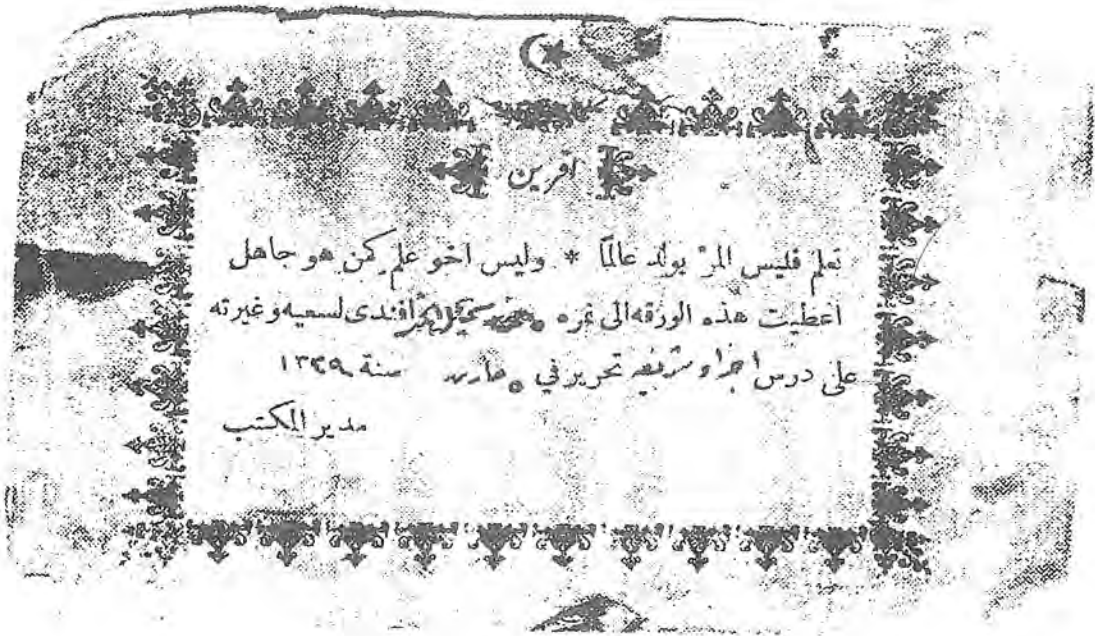 آفرين
تعلم فليس المرٔ يولد عالمًا * وليس اخو علم كمن هو جاهل
اعطيت هذه الورقه الى نمره افندى لسعيه وغيرته
على درس اجزاء شريفه تحرير في مارت سنة ١٣٢٩
مدير المكتب